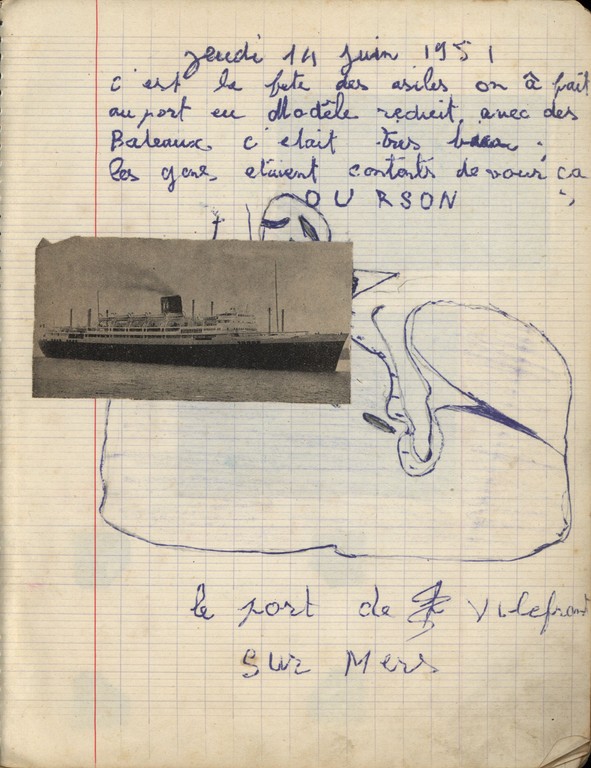 jeudi 14 juin 1951
c'est la fete des asiles on â fait
au port en Modèle reduit, avec des
Bateaux c'etait tres beau,
les gens etaient contents de vour ça
OURSON
le port de Vilefran
Sur Mers